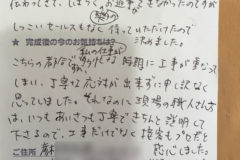 伝わってきて、しばらく、お返事できなかったのですが
しつこいセールスもなく待っていただけたので
決めました。
★完成後の今のお気持ちは?
私の仕事が
こちらの都合で 時期に工事が重なって
しまい、丁寧な応対が出来ずに申し訳なく
思っていました。それなのに現場の職人さん方
は、いつもあいさつも丁寧できちんと説明して
下さるので、工事だけでなく接客もプロだと
感心しました。
ご住所